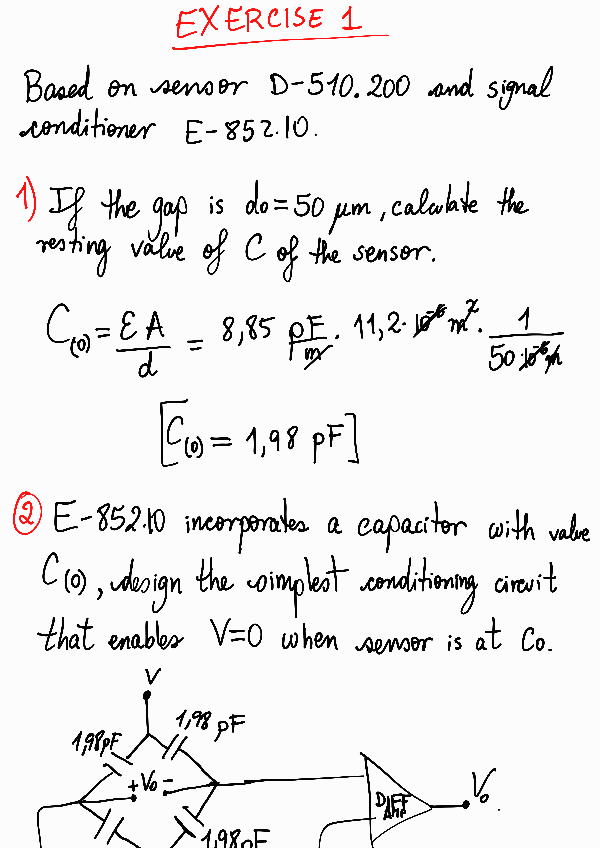 EXERCISE 1
Based on sensor D-510.200 and signal
conditioner E-852.10.
1) If the gap is do=50 μm, calculate the
resting value of C of the sensor.
C(0) = εA/d = 8,85 pF/m · 11,2·10⁻⁶ m² · 1/(50·10⁻⁶ m)
[C(0) = 1,98 pF]
2 E-852.10 incorporates a capacitor with value
C(0), design the simplest conditioning circuit
that enables V=0 when sensor is at Co.
V
1,98pF 1,98 pF
+ Vo -
DIFF
AMP
Vo
1,98pF